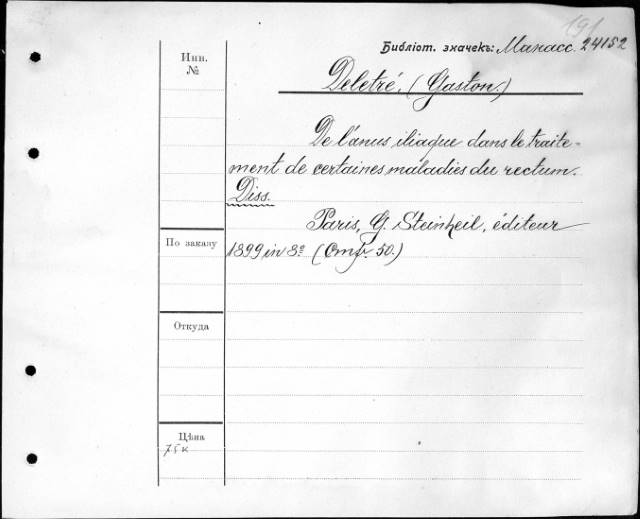 191
Библіот. значекъ: Манасс. 24152
Инн.
№
Deletré. (Gaston.)
De l'anus iliaque dans le traite-
ment de certaines maladies du rectum.
Diss.
Paris, G. Steinheil, éditeur
По заказу
1899 in 8º (Стр. 50.)
Откуда
Цѣна
75 к